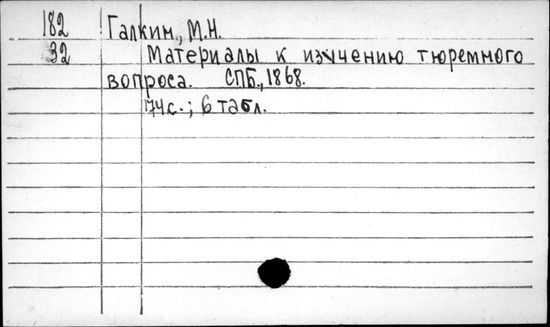 182 Галкин, М.Н.
32 Материалы к изучению тюремного
вопроса. СПБ., 1868.
74с.; 6 табл.